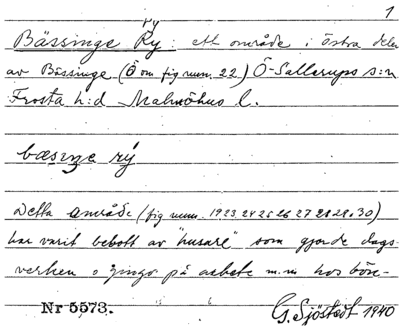 1
Ry
Bässinge Ry: ett område i östra delen
av Bässinge (Ö om fig num. 22) Ö-Sallerups s:n
Frosta h:d Malmöhus l.
bæsiŋe rý
Detta område (fig num. 1923 24 25 26 27 28 29 o 30)
har varit bebott av "husare" som gjorde dags-
verken o gingo på arbete m.m hos bön-
Nr 5573. G. Sjöstedt 1940